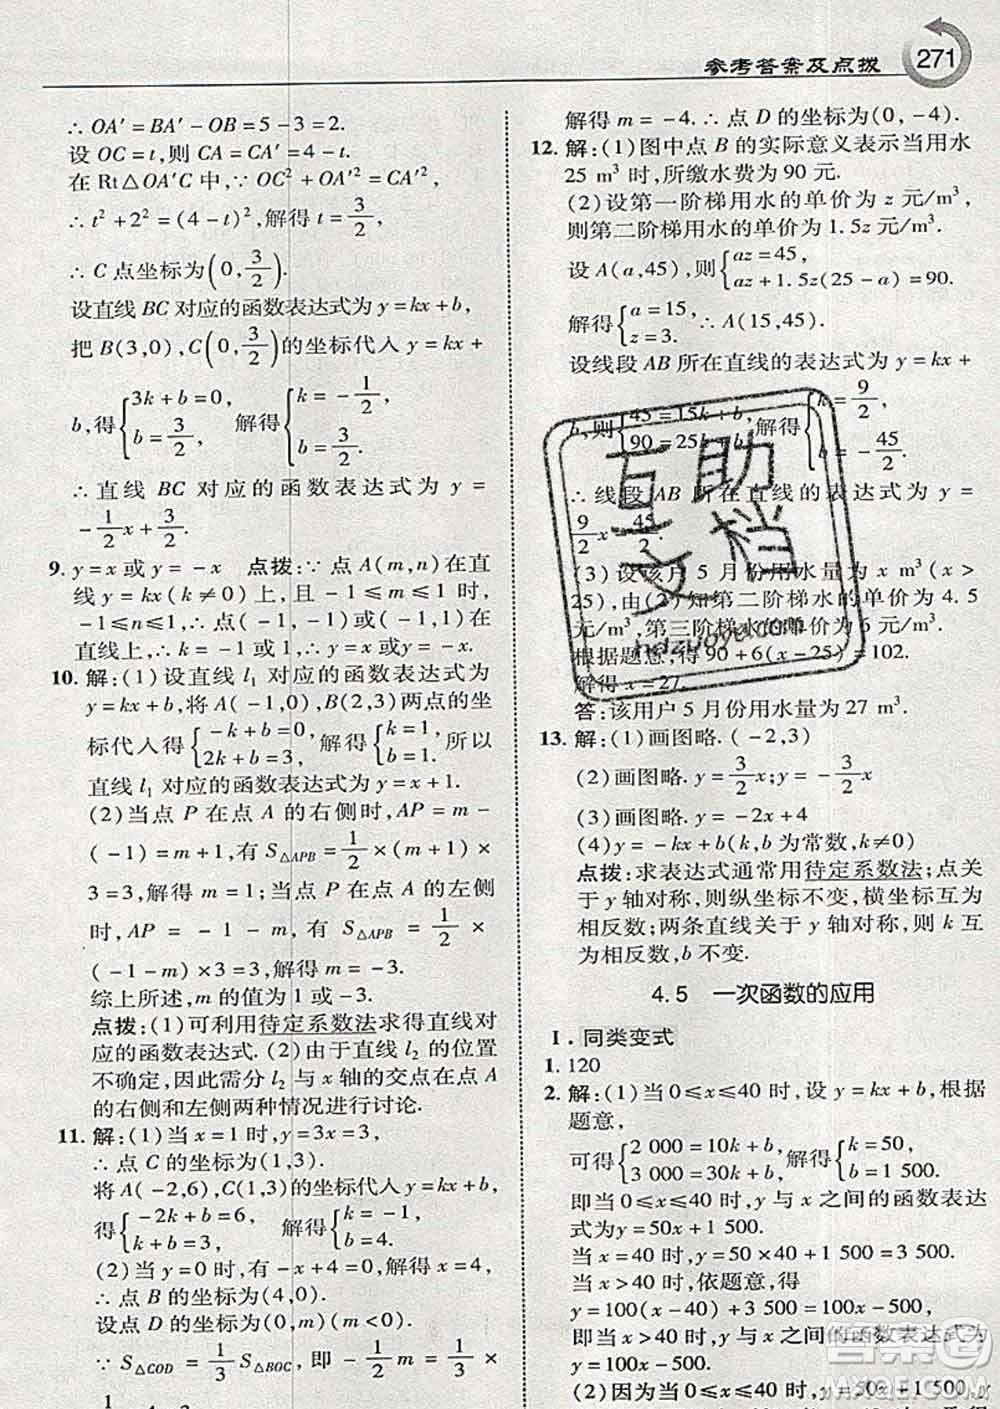 参考答案及点拨
271
∴ OA′ = BA′ − OB = 5 − 3 = 2.
设 OC = t, 则 CA = CA′ = 4 − t.
在 Rt△OA′C 中, ∵ OC² + OA′² = CA′²,
∴ t² + 2² = (4 − t)², 解得 t = 3/2.
∴ C 点坐标为(0, 3/2).
设直线 BC 对应的函数表达式为 y = kx + b,
把 B(3,0), C(0, 3/2) 的坐标代入 y = kx +
b, 得{3k + b = 0, b = 3/2, 解得{k = −1/2, b = 3/2.
∴ 直线 BC 对应的函数表达式为 y =
−1/2 x + 3/2.
9. y = x 或 y = −x 点拨: ∵ 点 A(m, n) 在直
线 y = kx(k ≠ 0) 上, 且 −1 ≤ m ≤ 1 时,
−1 ≤ n ≤ 1, ∴ 点(−1, −1)或(−1,1)在
直线上, ∴ y = x 或 y = −x.
10. 解:(1)设直线 l₁ 对应的函数表达式为
y = kx + b, 将 A(−1,0), B(2,3)两点的坐
标代入得{−k + b = 0, 2k + b = 3, 解得{k = 1, b = 1. 所以
直线 l₁ 对应的函数表达式为 y = x + 1.
(2)当点 P 在点 A 的右侧时, AP = m −
(−1) = m + 1, 有 S△APB = 1/2 × (m + 1) ×
3 = 3, 解得 m = 1; 当点 P 在点 A 的左侧
时, AP = −1 − m, 有 S△APB = 1/2 ×
(−1 − m) × 3 = 3, 解得 m = −3.
综上所述, m 的值为 1 或 −3.
点拨:(1)可利用待定系数法求得直线对
应的函数表达式. (2)由于直线 l₂ 的位置
不确定, 因此需分 l₂ 与 x 轴的交点在点 A
的右侧和左侧两种情况进行讨论.
11. 解:(1)当 x = 1 时, y = 3x = 3,
∴ 点 C 的坐标为(1,3).
将 A(−2,6), C(1,3)的坐标代入 y = kx + b,
得{−2k + b = 6, k + b = 3, 解得{k = −1, b = 4.
(2)当 y = 0 时, 有 −x + 4 = 0, 解得 x = 4,
∴ 点 B 的坐标为(4,0).
设点 D 的坐标为(0, m)(m < 0).
∵ S△COD = 1/3 S△BOC, 即 −1/2 m = 1/3 ×
解得 m = −4. ∴ 点 D 的坐标为(0, −4).
12. 解:(1)图中点 B 的实际意义表示当用水
25 m³ 时, 所缴水费为 90 元.
(2)设第一阶梯用水的单价为 z 元/m³,
则第二阶梯用水的单价为 1.5z 元/m³.
设 A(a,45), 则{az = 45, az + 1.5z(25 − a) = 90.
解得{a = 15, z = 3. ∴ A(15,45).
设线段 AB 所在直线的表达式为 y = kx +
b, 则{45 = 15k + b, 90 = 25k + b, 解得{k = 9/2, b = −45/2.
∴ 线段 AB 所在直线的表达式为 y =
9/2 x − 45/2.
(3)设该户 5 月份用水量为 x m³(x >
25), 由(2)知第二阶梯水的单价为 4.5
元/m³, 第三阶梯水的单价为 6 元/m³.
根据题意, 得 90 + 6(x − 25) = 102.
解得 x = 27.
答: 该用户 5 月份用水量为 27 m³.
13. 解:(1)画图略. (−2,3)
(2)画图略. y = 3/2 x; y = −3/2 x
(3)画图略. y = −2x + 4
(4)y = −kx + b(k, b 为常数, k ≠ 0)
点拨: 求表达式通常用待定系数法; 点关
于 y 轴对称, 则纵坐标不变, 横坐标互为
相反数; 两条直线关于 y 轴对称, 则 k 互
为相反数, b 不变.
4.5 一次函数的应用
Ⅰ. 同类变式
1. 120
2. 解:(1)当 0 ≤ x ≤ 40 时, 设 y = kx + b, 根据
题意,
可得{2 000 = 10k + b, 3 000 = 30k + b, 解得{k = 50, b = 1 500.
即当 0 ≤ x ≤ 40 时, y 与 x 之间的函数表达
式为 y = 50x + 1 500.
当 x = 40 时, y = 50 × 40 + 1 500 = 3 500.
当 x > 40 时, 依题意, 得
y = 100(x − 40) + 3 500 = 100x − 500,
即当 x > 40 时, y 与 x 之间的函数表达式为
y = 100x − 500.
(2)因为当 0 ≤ x ≤ 40 时, y = 50x + 1 500,
互助文档
hdzuoye.com
答案圈